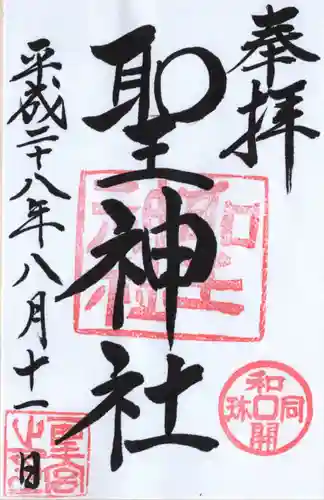 奉拝
聖神社
平成二十八年八月十一日
和同開珎